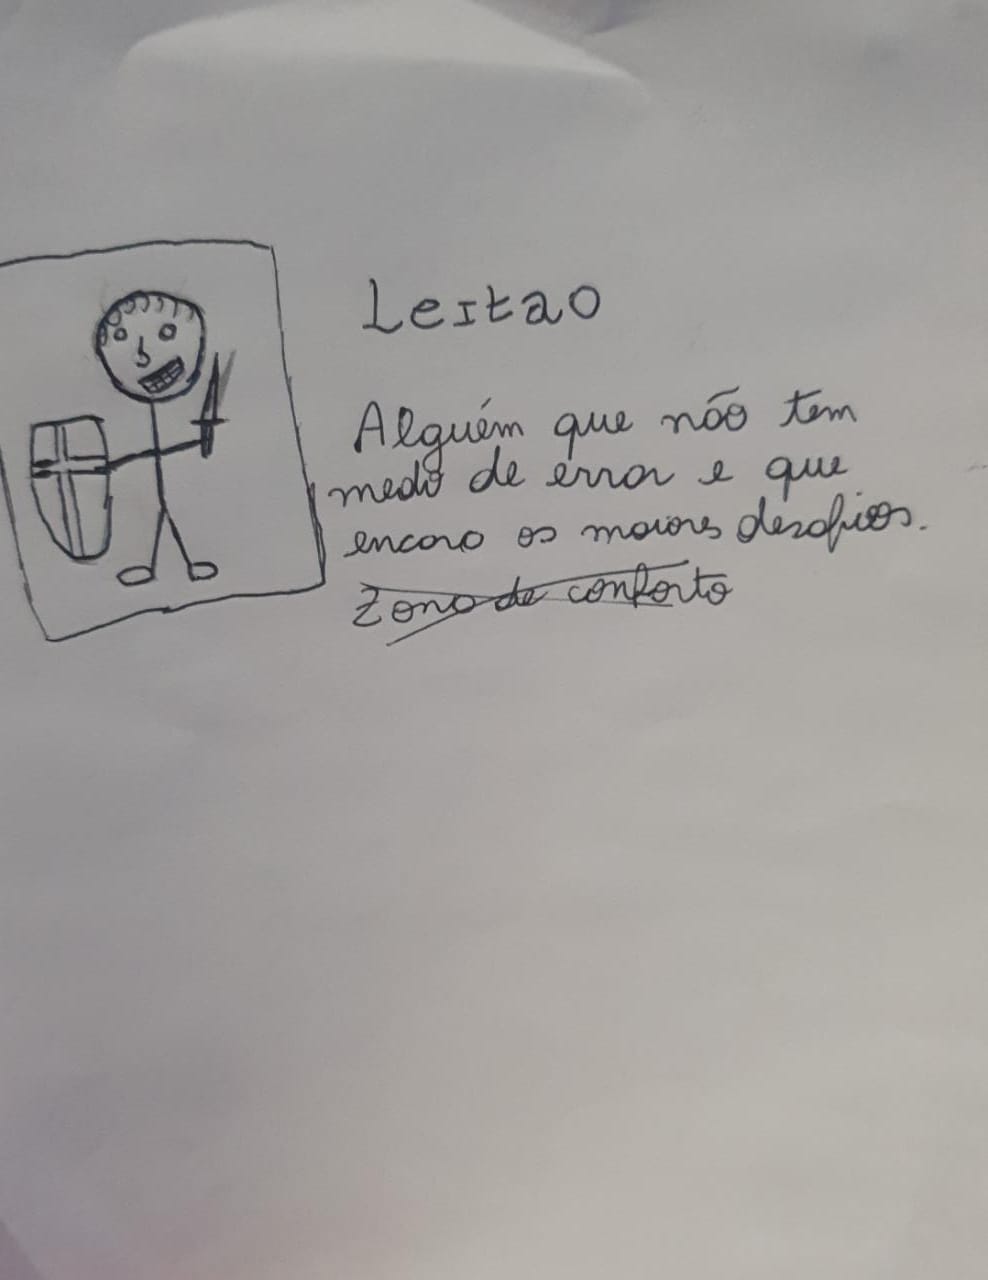 Leitao
Alguém que não tem
medo de errar e que
encara os maiores desafios.
Zona de conforto